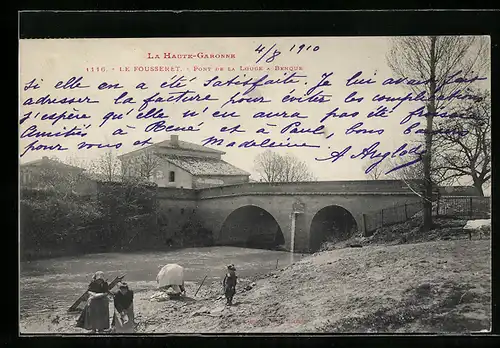 La Haute-Garonne
4/8 1910
1116. - LE FOUSSERET. - Pont de la Louge à Benque
Si elle en a été satisfaite et Je lui avais
adresser la facture pour éviter les complications
J'espère qu'elle n'en aura pas été fâchée
Amitiés à René et à Paul, bons baisers
pour vous et Madeleine